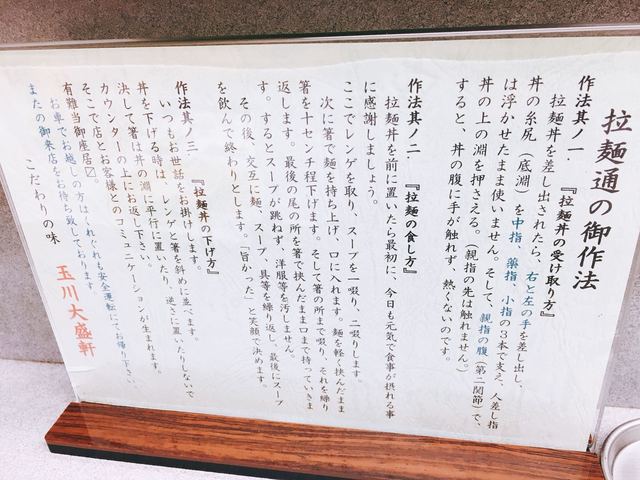 拉麺通の御作法
作法其ノ一. 『拉麺丼の受け取り方』
拉麺丼を差し出されたら、右と左の手を差し出し、
丼の糸尻（底淵）を中指、薬指、小指の3本で支え、人差し指
は浮かせたまま使いません。そして、親指の腹（第二関節）で、
丼の上の淵を押さえる。（親指の先は触れません。）
すると、丼の腹に手が触れず、熱くないのです。
作法其ノ二. 『拉麺の食し方』
拉麺丼を前に置いたら最初に、今日も元気で食事が摂れる事
に感謝しましょう。
ここでレンゲを取り、スープを一啜り、二啜りします。
次に箸で麺を持ち上げ、口に入れます。麺を軽く挟んだまま
箸を十センチ程下げます。そして箸の所まで啜り、それを繰り
返します。最後の尾の所を箸で挟んだまま口まで持っていきま
す。するとスープが跳ねず、洋服等を汚しません。
その後、交互に麺、スープ、具等を繰り返し、最後にスープ
を飲んで終わりとします。「旨かった」と笑顔で決めます。
作法其ノ三. 『拉麺丼の下げ方』
いつもお世話をお掛けします。
丼を下げる時は、レンゲと箸を斜めに並べます。
決して箸は丼の淵に平行に置いたり、逆さに置いたりしないで
カウンターの上にお返し下さい。
そこで店とお客様とのコミュニケーションが生まれます。
有難当御座居〼
お車でお越しの方は、くれぐれも安全運転にてお帰り下さい。
またの御来店をお待ち致しております。
こだわりの味
玉川大盛軒